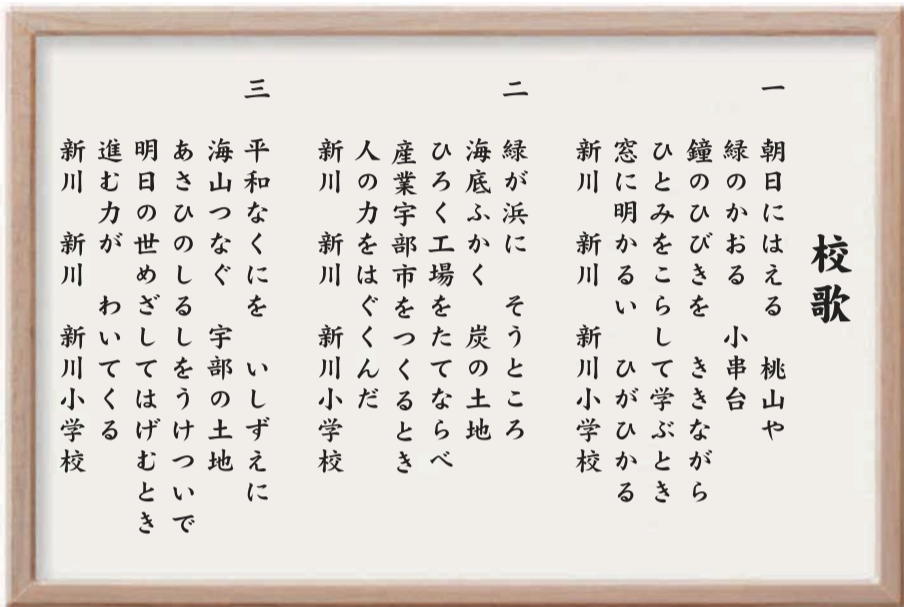 校歌
一 朝日にはえる 桃山や
緑のかおる 小串台
鐘のひびきを ききながら
ひとみをこらして学ぶとき
窓に明かるい ひがひかる
新川 新川 新川小学校
二 緑が浜に そうところ
海底ふかく 炭の土地
ひろく工場をたてならべ
産業宇部市をつくるとき
人の力をはぐくんだ
新川 新川 新川小学校
三 平和なくにを いしずえに
海山つなぐ 宇部の土地
あさひのしるしをうけついで
明日の世めざしてはげむとき
進む力が わいてくる
新川 新川 新川小学校